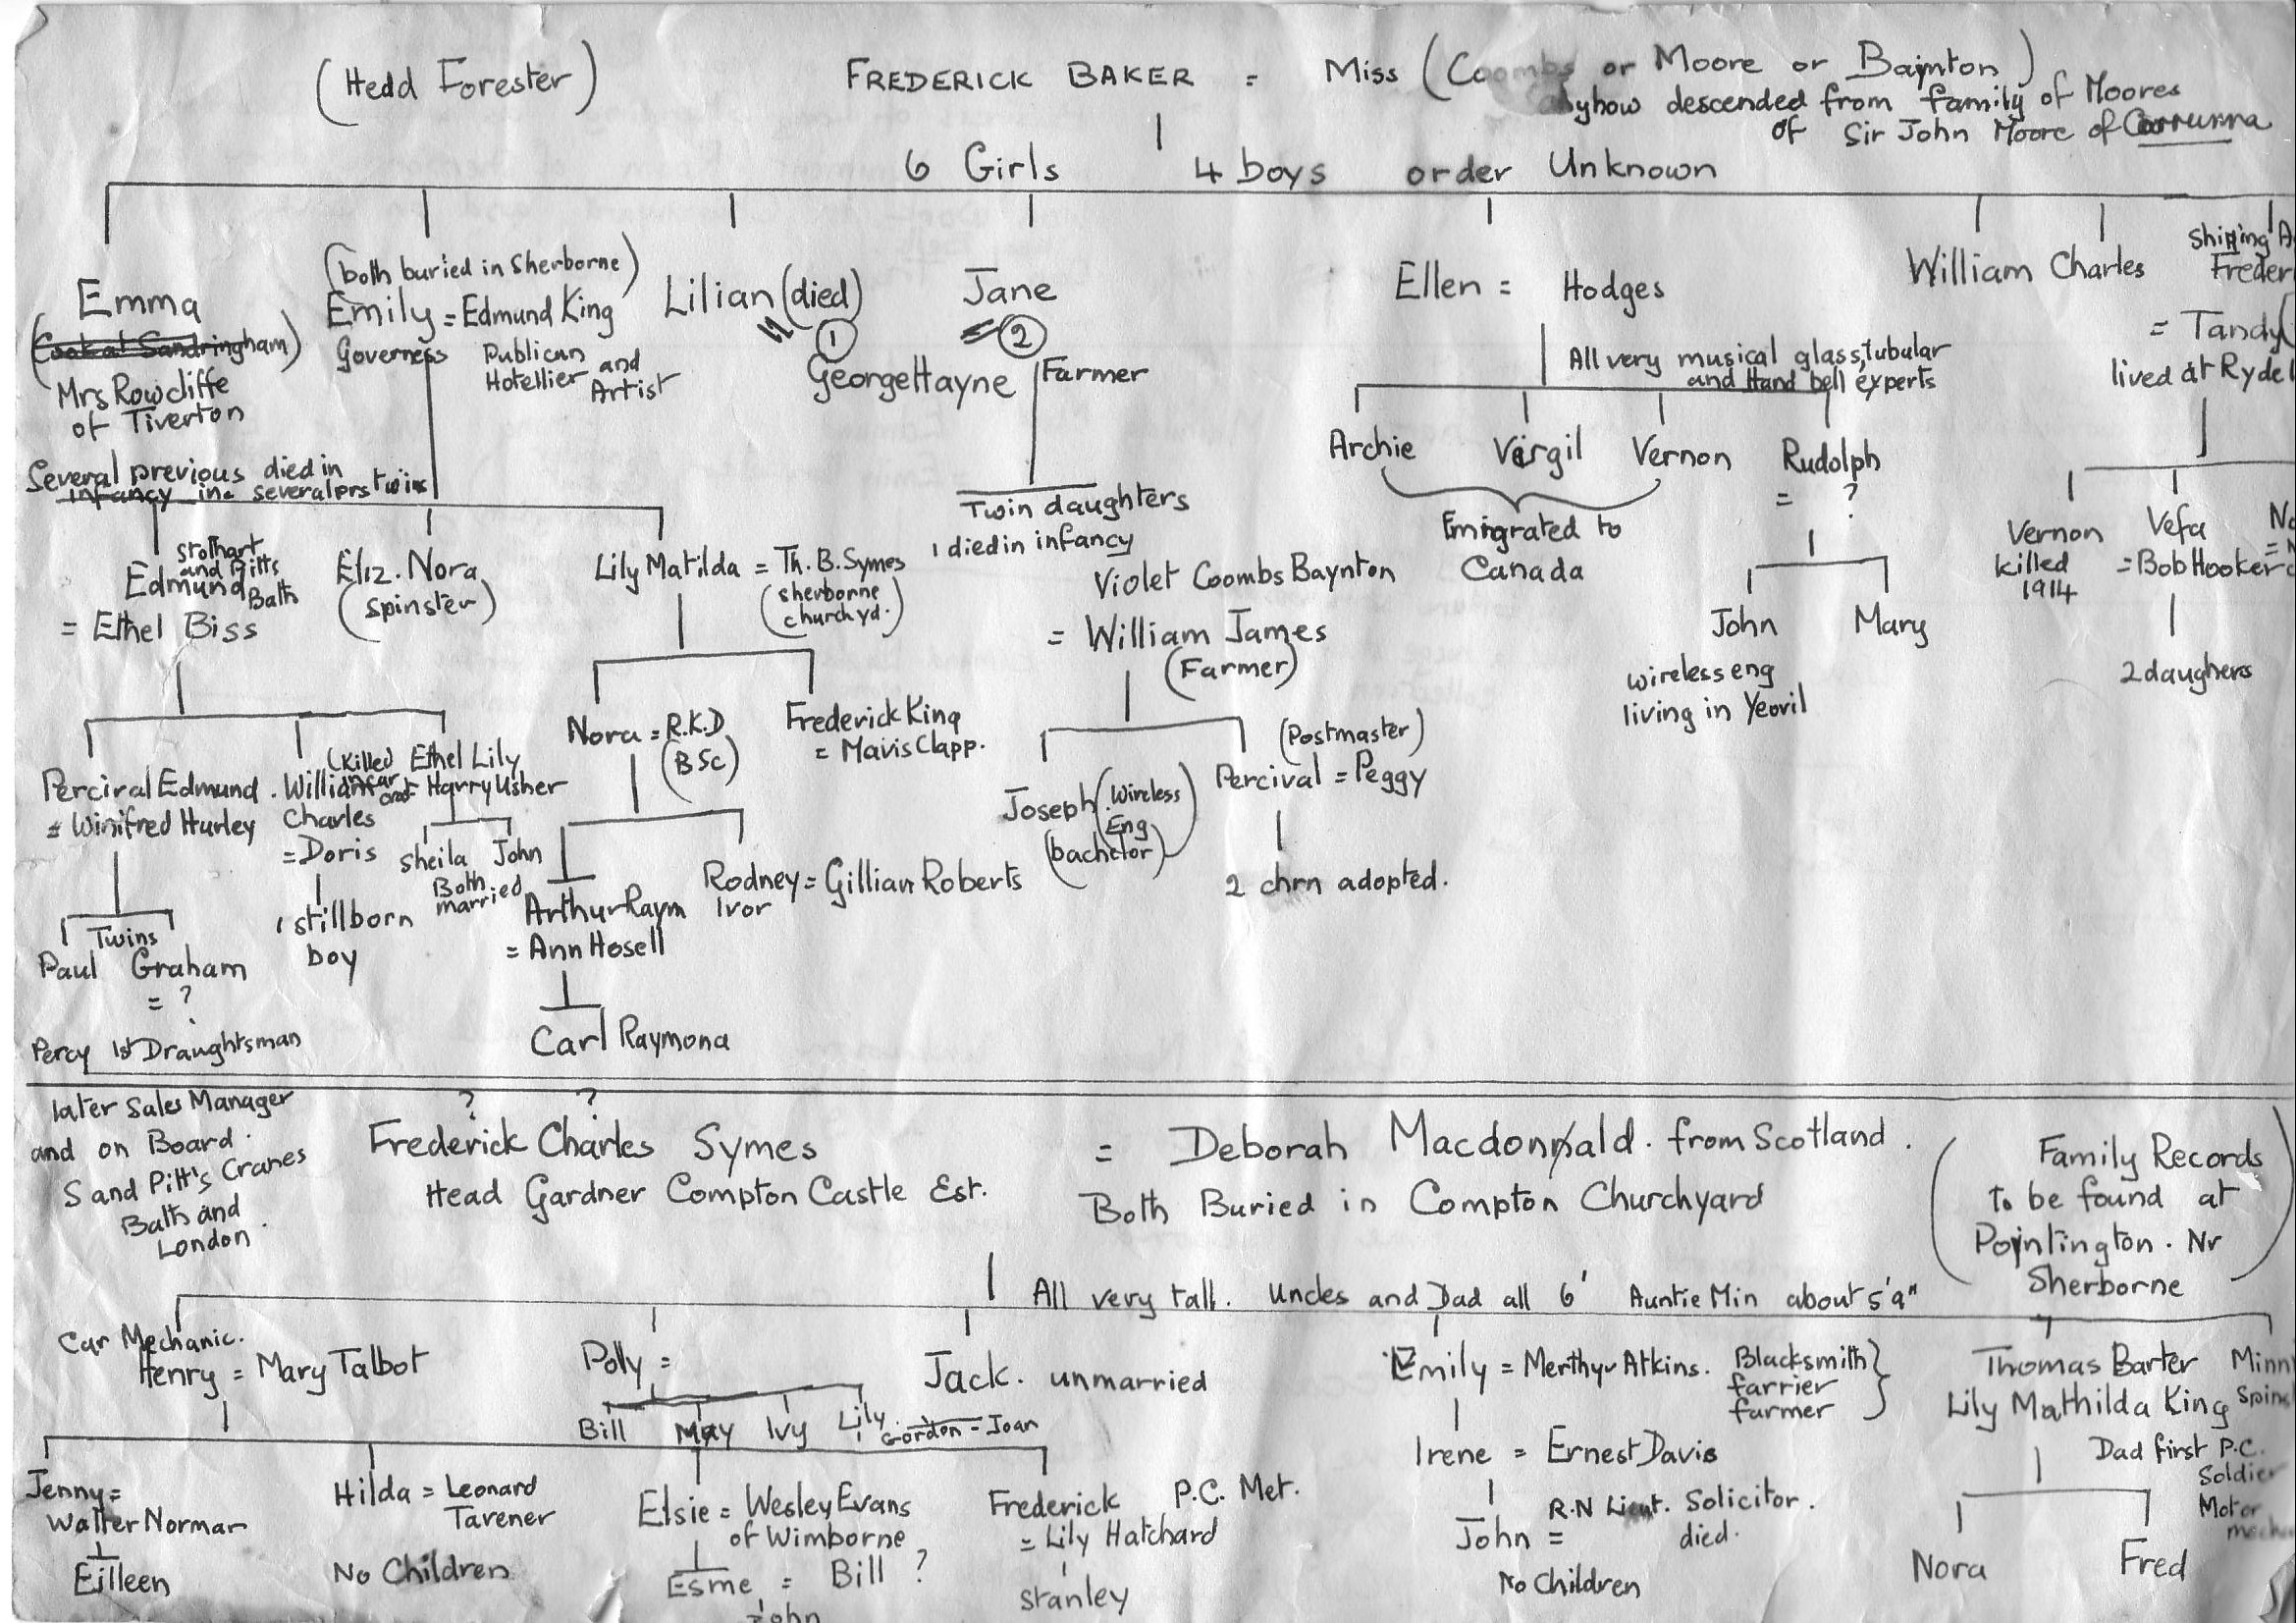 (Hedd Forester)
FREDERICK BAKER = Miss (Coombs or Moore or Baynton)
anyhow descended from family of Moores
of Sir John Moore of Corrunna
6 Girls 4 boys order Unknown
Emma
(Cook at Sandringham)
Mrs Rowcliffe
of Tiverton
(both buried in Sherborne)
Emily = Edmund King
Governess
Publican
Hotellier and
Artist
Lilian (died)
Jane
= 1
George Hayne
= 2
Farmer
Ellen = Hodges
All very musical glass, tubular
and Hand bell experts
William Charles
Shipping
= Tandy
lived at Ryde
Archie Virgil Vernon Rudolph
= ?
Emigrated to
Canada
John Mary
wireless eng
living in Yeovil
Vernon
killed
1914
Vefa
= Bob Hooker
2 daughers
Several previous died in
infancy inc several prs twins
Stothart
and Pitts
Edmund Bath
= Ethel Biss
Eliz. Nora
(spinster)
Lily Matilda = Th. B. Symes
(sherborne
churchyd.)
Twin daughters
1 died in infancy
Violet Coombs Baynton
= William James
(Farmer)
Nora = R.K.D
(BSc)
Frederick King
= Mavis Clapp.
Joseph (Wireless
Eng)
(bachelor)
(Postmaster)
Percival = Peggy
2 chrn adopted.
Percival Edmund.
= Winifred Hurley
William (killed
in car acc
Charles
= Doris
1 stillborn
boy
Ethel Lily
= Harry Usher
Sheila John
Both
married
Arthur Raym
= Ann Hosell
Rodney = Gillian Roberts
Ivor
Twins
Paul Graham
= ?
Carl Raymona
Percy 1st Draughtsman
later Sales Manager
and on Board.
S and Pitt's Cranes
Bath and
London.
? ?
Frederick Charles Symes = Deborah Macdonald. from Scotland.
Head Gardner Compton Castle Est.
Both Buried in Compton Churchyard
(Family Records
to be found at
Poyntington. Nr
Sherborne)
All very tall. Uncles and Dad all 6' Auntie Min about 5'9"
Car Mechanic.
Henry = Mary Talbot
Polly =
Bill May Ivy Lily
Gordon = Joan
Jack. unmarried
Emily = Merthyr Atkins. Blacksmith
farrier
farmer
Irene = Ernest Davis
John =
R.N Lieut. Solicitor.
died.
No Children
Thomas Barter
Lily Mathilda King
Dad first P.C.
Soldier
Motor
Nora Fred
Jenny =
Walter Norman
Eilleen
Hilda = Leonard
Tavener
No Children
Elsie = Wesley Evans
of Wimborne
Esme = Bill ?
John
Frederick P.C. Met.
= Lily Hatchard
Stanley